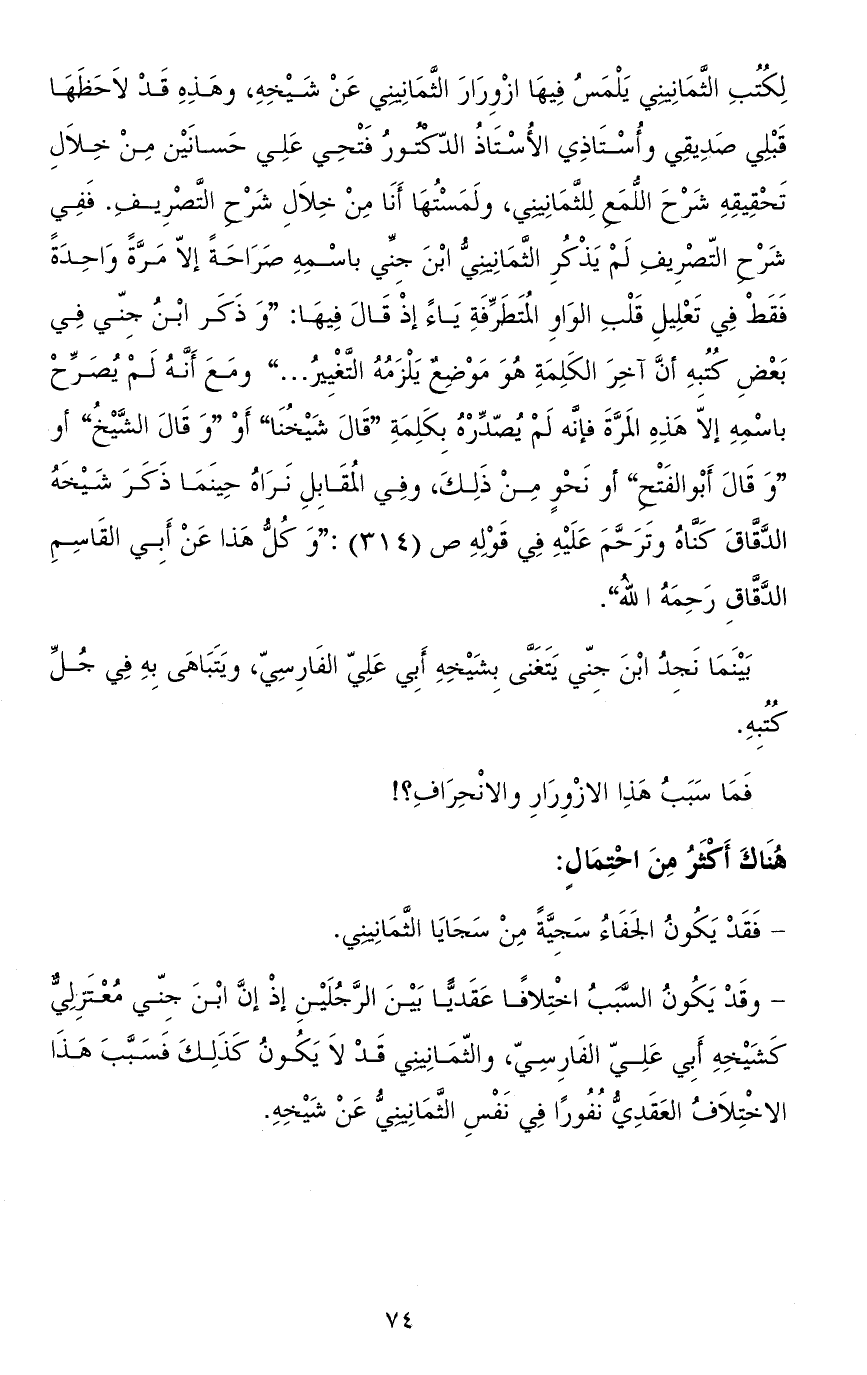 لِكُتُبِ الثَّمَانِينِي يَلْمَسُ فِيهَا ازْوِرَارَ الثَّمَانِينِي عَنْ شَـيْخِهِ، وهَـذِهِ قَـدْ لاَحَظَهَـا
قَبْلِي صَدِيقِي وأُسْـتَاذِي الأُسْـتَاذُ الدّكْتُـورُ فَتْـحِي عَلِـي حَسـانَيْن مِـنْ خِـلاَلِ
تَحْقِيقِهِ شَرْحَ اللُّمَعِ لِلثَّمَانِينِي، ولَمَسْتُهَا أَنَا مِنْ خِلاَلِ شَرْحِ التَّصْرِيـفِ. فَفِـي
شَرْحِ التّصْرِيفِ لَمْ يَذْكُرِ الثَّمَانِينِيُّ ابْنَ جِنِّي باسْـمِهِ صَرَاحَـةً إلاّ مَـرَّةً وَاحِـدَةً
فَقَطْ فِي تَعْلِيلِ قَلْبِ الوَاوِ المُتَطَرِّفَةِ يَـاءً إذْ قَـالَ فِيهَـا: ”وَ ذَكَـرَ ابْـنُ جِنّـي فِـي
بَعْضِ كُتُبِهِ أنَّ آخِرَ الكَلِمَةِ هُوَ مَوْضِعٌ يَلْزَمُهُ التَّغْيِيرُ...“ ومَـعَ أَنَّـهُ لَـمْ يُصَـرِّحْ
باسْمِهِ إلاّ هَذِهِ المَرَّةَ فإنَّه لَمْ يُصّدِّرْهُ بِكَلِمَةِ ”قَالَ شَيْخُنَا“ أوْ ”وَ قَالَ الشَّيْخُ“ أو
”وَ قَالَ أَبُوالفَتْحِ“ أو نَحْوٍ مِـنْ ذَلِـكَ، وفِـي المُقَـابِلِ نَـرَاهُ حِينَمَـا ذَكَـرَ شَـيْخَهُ
الدَّقَّاقَ كَنَّاهُ وتَرَحَّمَ عَلَيْهِ فِي قَوْلِهِ ص (٣١٤) :”وَ كُلُّ هَذا عَنْ أَبِـي القَاسِـمِ
الدَّقَّاقِ رَحِمَهُ اللهُ“.
بَيْنَمَا نَجِدُ ابْنَ جِنّي يَتَغَنَّى بِشَيْخِهِ أَبي عَلِيّ الفَارِسِيّ، ويَتَبَاهَى بِهِ فِي جُـلِّ
كُتُبِهِ.
فَمَا سَبَبُ هَذا الازْوِرَارِ والانْحِرَافِ؟!
هُنَاكَ أَكْثَرُ مِنَ احْتِمَالٍ:
– فَقَدْ يَكُونُ الجَفَاءُ سَجِيَّةً مِنْ سَجَايَا الثَّمَانِينِي.
– وقَدْ يَكُونُ السَّبَبُ اخْتِلافًـا عَقَدِيًّـا بَيْـنَ الرَّجُلَيْـنِ إذْ إنَّ ابْـنَ جِنّـي مُعْـتَزِلِيٌّ
كَشَيْخِهِ أَبي عَلِـيّ الفَـارِسِـيّ، والثّمَـانِينِي قَـدْ لاَ يَكُـونُ كَذَلِـكَ فَسَـبَّبَ هَـذَا
الاخْتِلاَفُ العَقَدِيُّ نُفُورًا فِي نَفْسِ الثَّمَانِينِيُّ عَنْ شَيْخِهِ.
٧٤